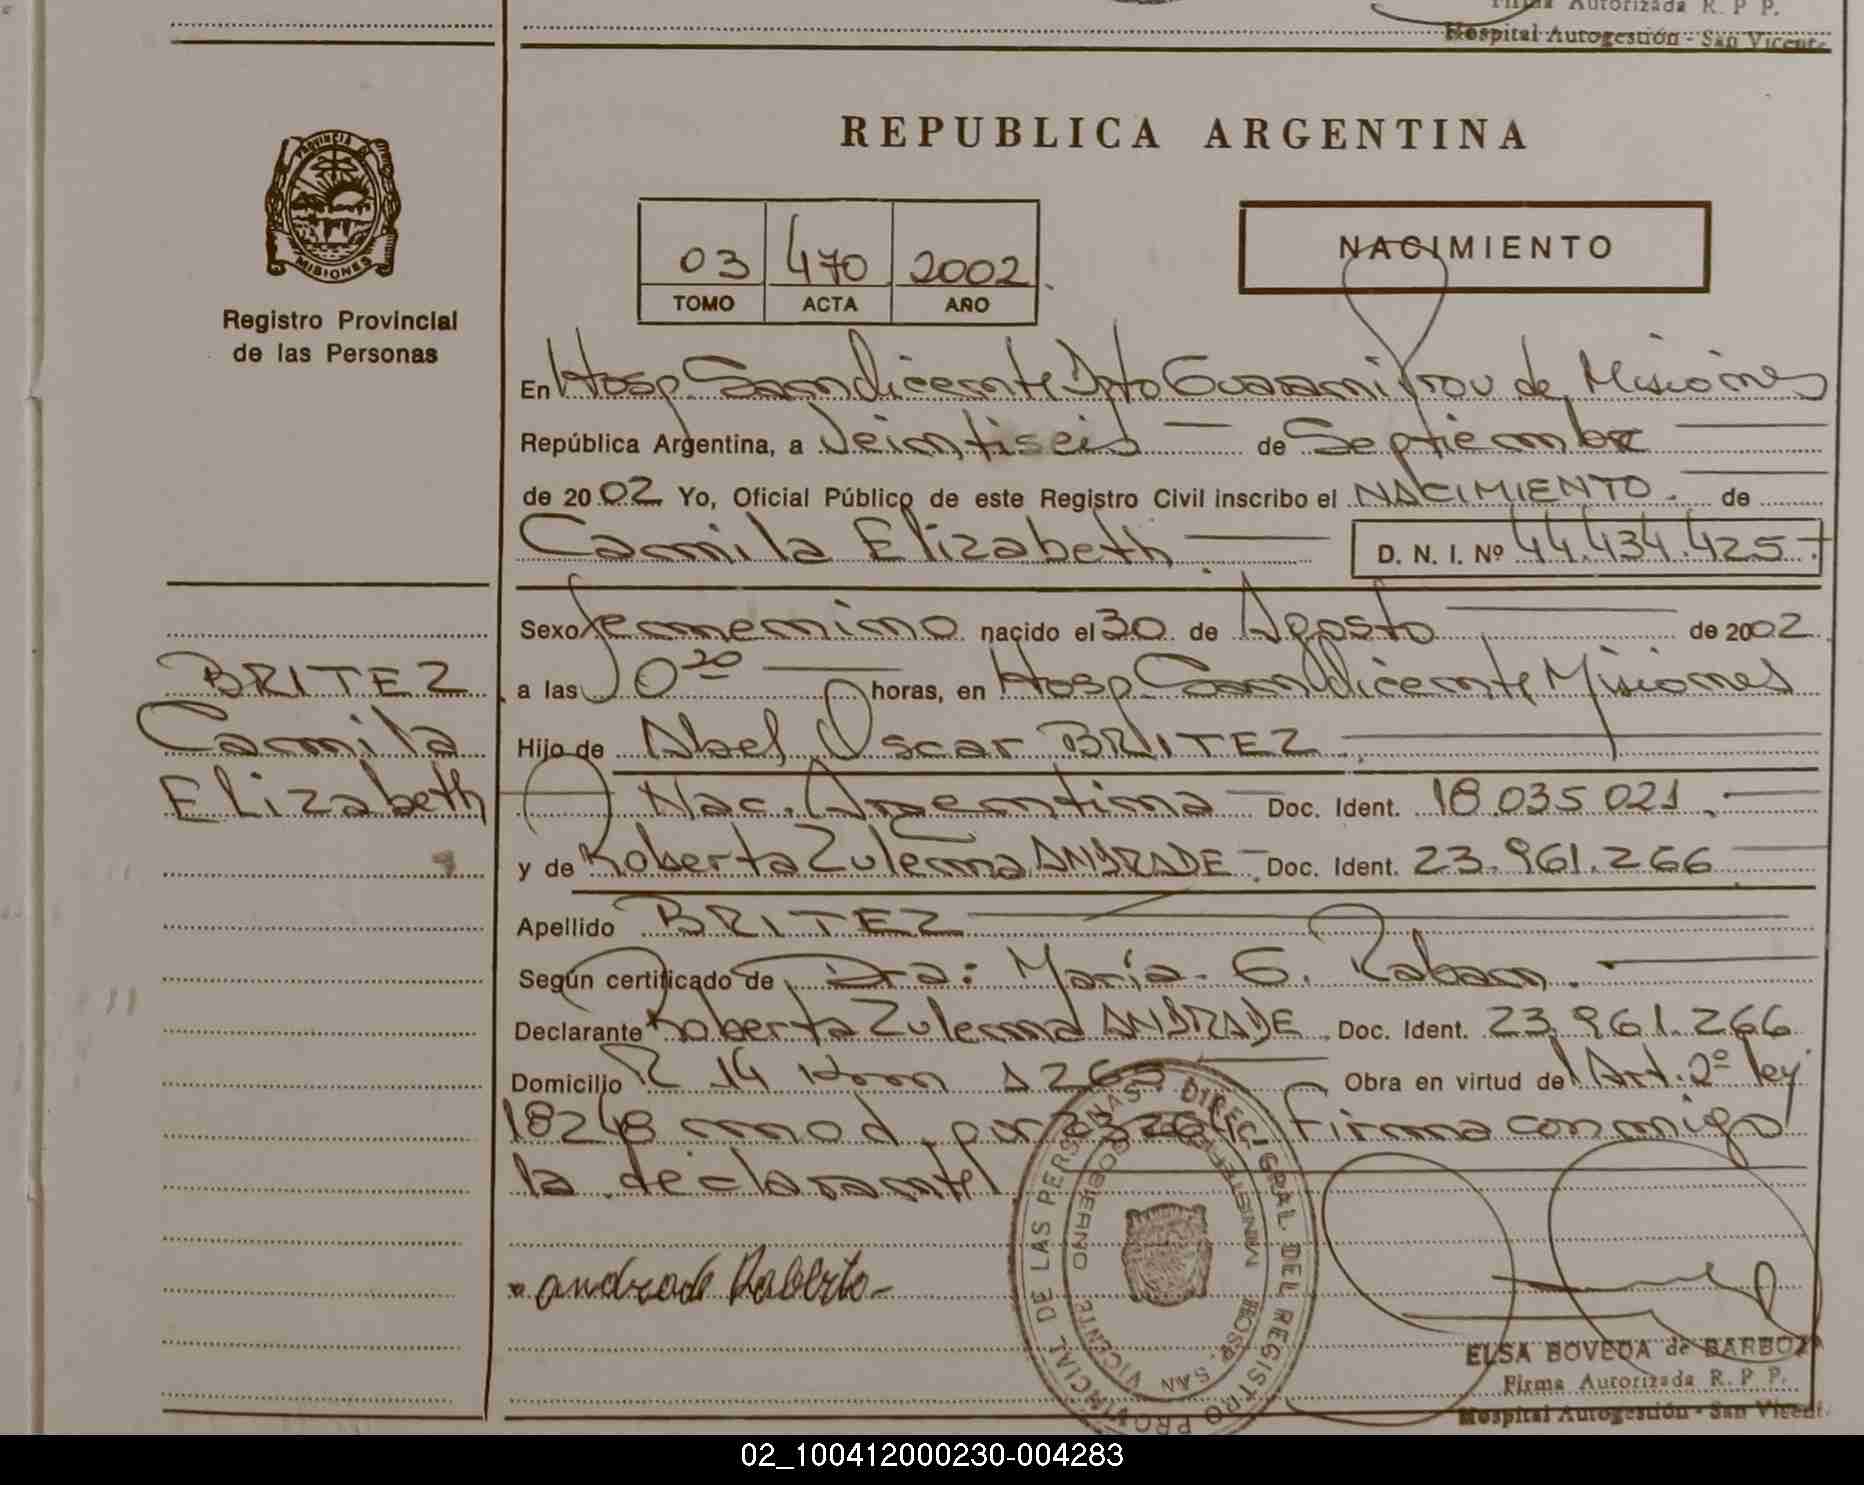 Firma Autorizada R. P P.
Hospital Autogestión - San Vicente
REPUBLICA ARGENTINA
PROVINCIA DE MISIONES
Registro Provincial
de las Personas
03 470 2002
TOMO ACTA AÑO
NACIMIENTO
En Hosp San Vicente Dpto Guarani Prov de Misiones
República Argentina, a Veintiseis de Septiembre
de 2002 Yo, Oficial Público de este Registro Civil inscribo el NACIMIENTO. de
Camila Elizabeth D. N. I. Nº 44.434.425
Sexo femenino nacido el 30 de Agosto de 2002
BRITEZ
a las 0 20 horas, en Hosp San Vicente Misiones
Camila
Hijo de Abel Oscar BRITEZ
Elizabeth
Nac. Argentina Doc. Ident. 18.035.021
y de Roberta Zulema ANDRADE Doc. Ident. 23.961.266
Apellido BRITEZ
Según certificado de Dra: María G. Raban
Declarante Roberta Zulema ANDRADE Doc. Ident. 23.961.266
Domicilio R 14 Km 1265 Obra en virtud del Art. 2º ley
18248 mod. por Firma conmigo
la declarante
DIREC. GRAL. DEL REGISTRO PROVINCIAL DE LAS PERSONAS
HOSP. SAN VICENTE
GOBIERNO
andrade Roberta
ELSA BOVEDA de BARBOZA
Firma Autorizada R. P P.
Hospital Autogestión - San Vicent.
02_100412000230-004283